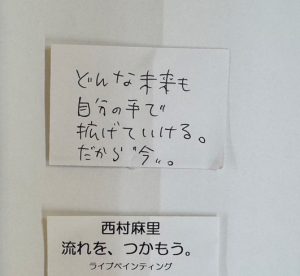 どんな未来も
自分の手で
拡げていける。
だから“今”。
西村麻里
流れを、つかもう。
ライブペインティング